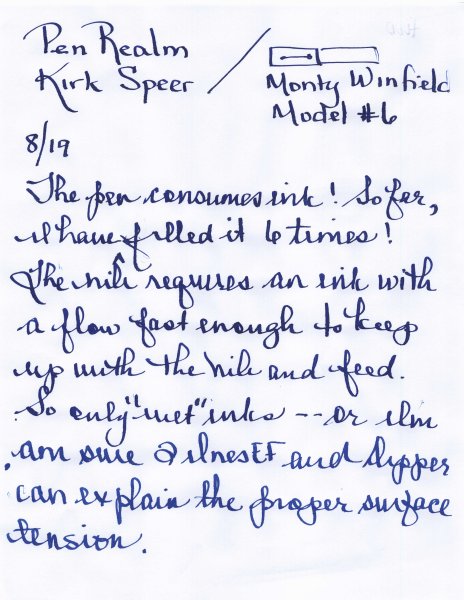 Pen Realm
Kirk Speer
Monty Winfield
Model #6
8/19
The pen consumes ink! So far,
I have filled it 6 times!
The nib requires an ink with
a flow fast enough to keep
up with the nib and feed.
So only "wet" inks -- or
am sure and
can explain the proper surface
tension.